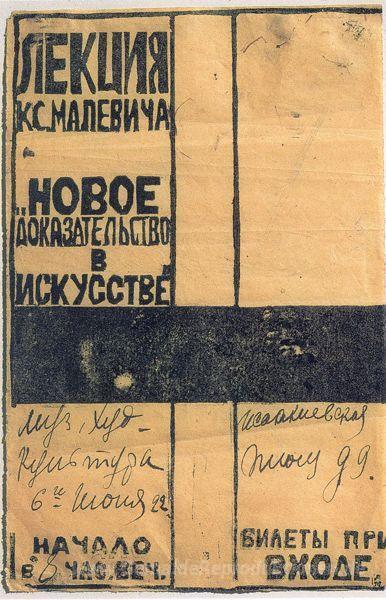 ЛЕКЦИЯ
К.С.МАЛЕВИЧА
„НОВОЕ
ДОКАЗАТЕЛЬСТВО
В
ИСКУССТВЕ"
Муз, Худ-
Культура
6го Июня 22.
НАЧАЛО
В 8 ЧАС. ВЕЧ.
Исаакиевская
площ 99.
БИЛЕТЫ ПРИ
ВХОДЕ.